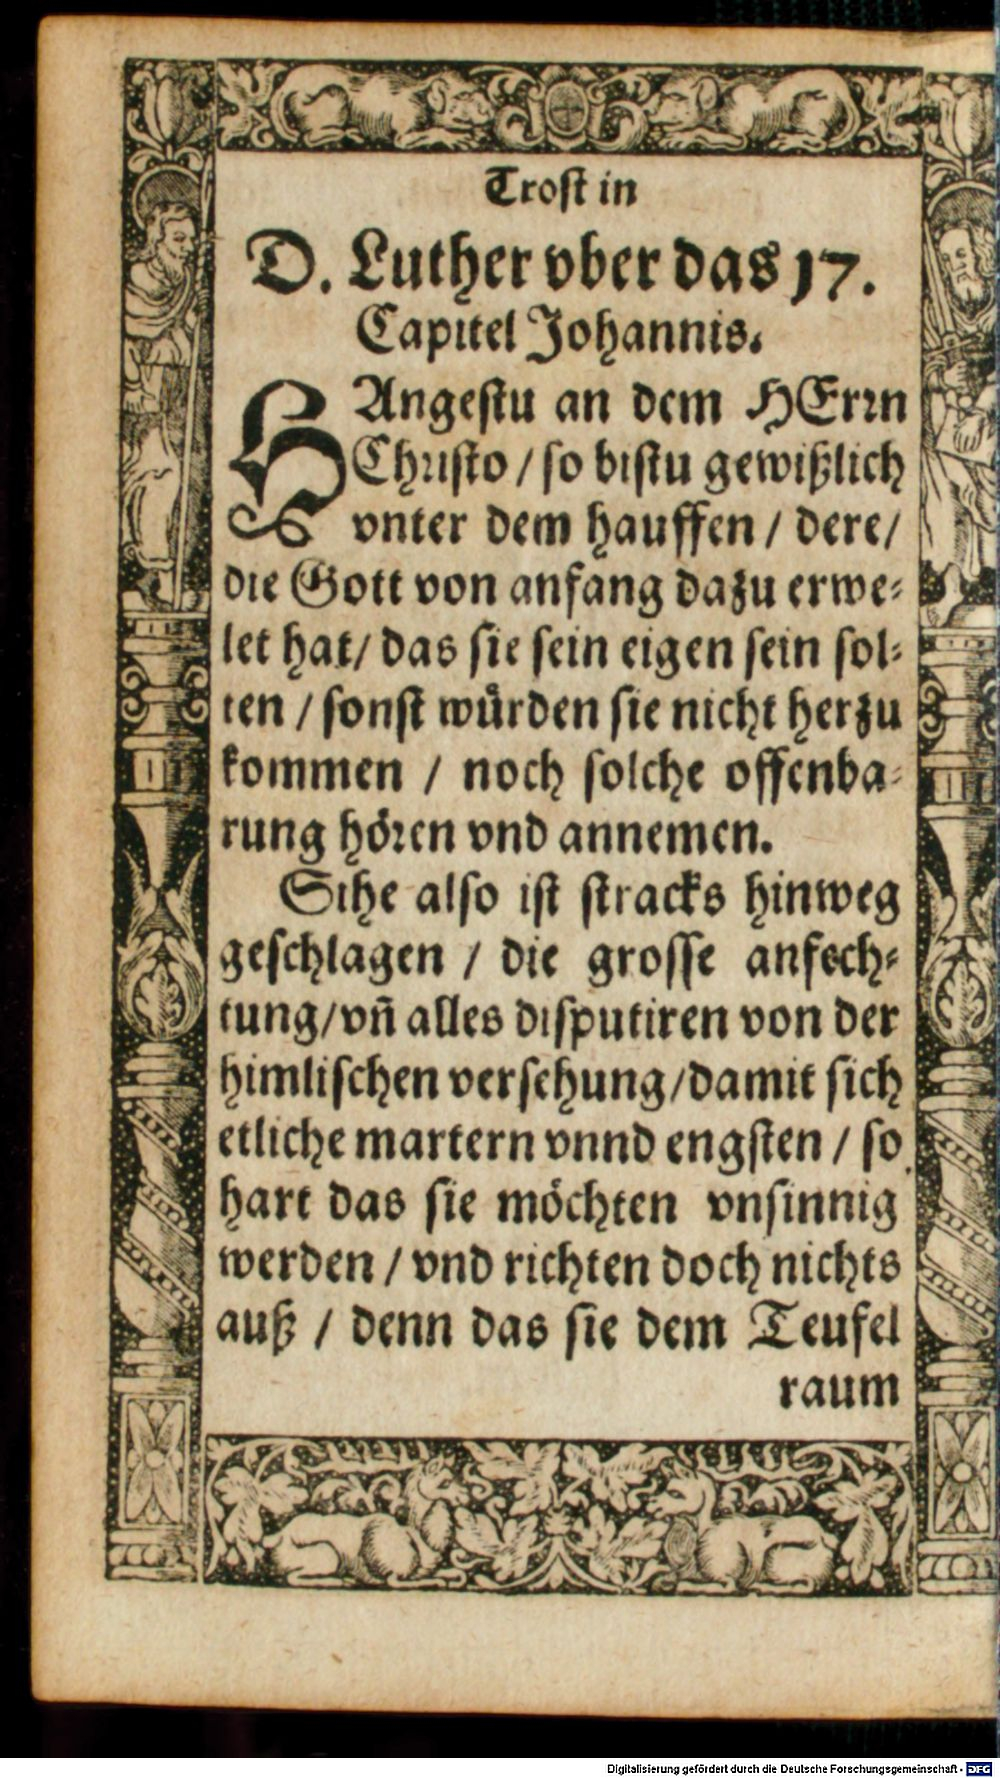 Trost in
D. Luther vber das 17.
Capitel Johannis.
HAngestu an dem HErrn
Christo / so bistu gewißlich
vnter dem hauffen / dere /
die Gott von anfang dazu erwe-
let hat / das sie sein eigen sein sol-
ten / sonst würden sie nicht herzu
kommen / noch solche offenba-
rung hören vnd annemen.
Sihe also ist stracks hinweg
geschlagen / die grosse anfech-
tung / vñ alles disputiren von der
himlischen versehung / damit sich
etliche martern vnnd engsten / so
hart das sie möchten vnsinnig
werden / vnd richten doch nichts
auß / denn das sie dem Teufel
raum
Digitalisierung gefördert durch die Deutsche Forschungsgemeinschaft - DFG